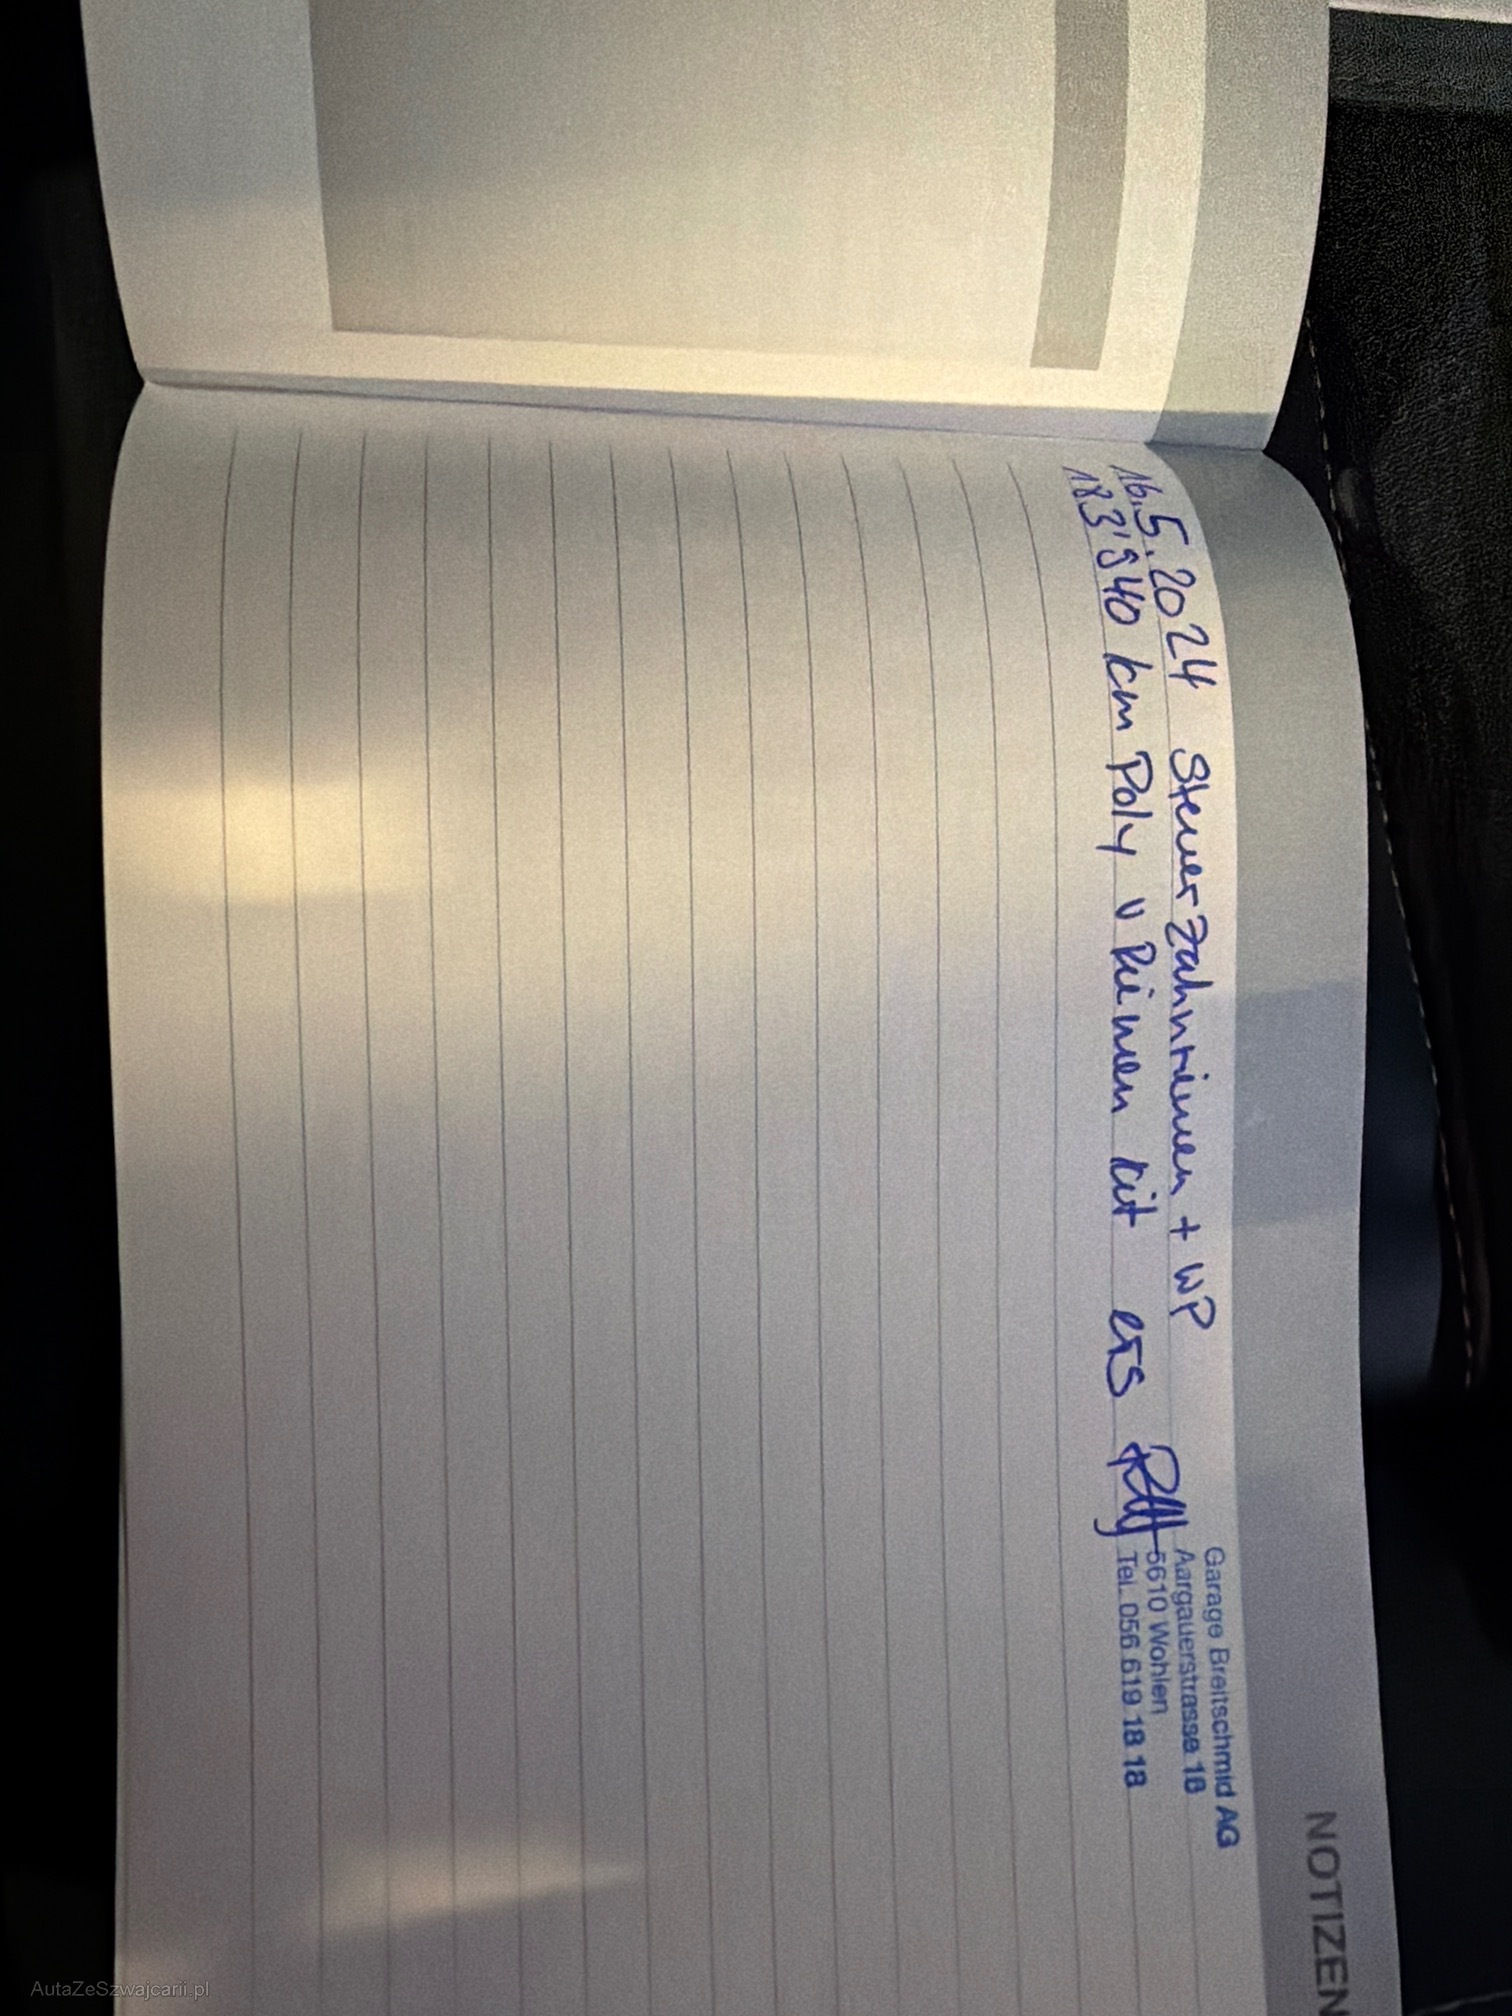 NOTIZEN
16.5.2024 Steuerzahnriemen + WP
183'940 km Poly V Riemen kit ers
Garage Breitschmid AG
Aargauerstrasse 18
5610 Wohlen
Tel. 056 619 18 18
AutaZeSzwajcarii.pl